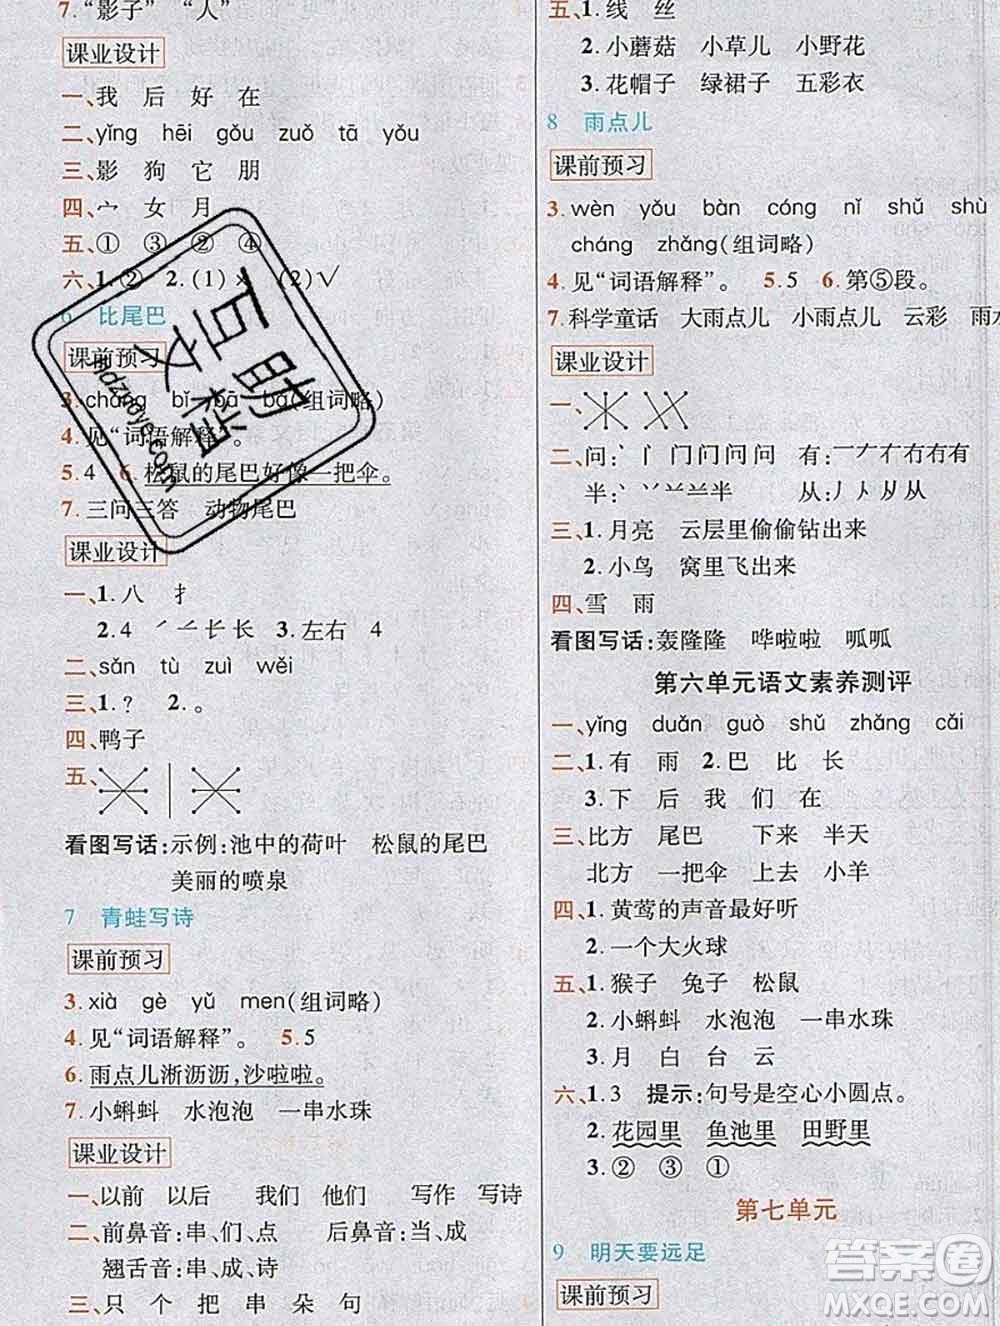 7.“影子” “人”
课业设计
一、我 后 好 在
二、yǐng hēi gǒu zuǒ tā yǒu
三、影 狗 它 朋
四、宀 女 月
五、① ③ ② ④
六、1.② 2.(1)× (2)√
6 比尾巴
课前预习
3. cháng bǐ bā bǎ(组词略)
4. 见“词语解释”。
5. 4 6. 松鼠的尾巴好像一把伞。
7. 三问三答 动物尾巴
课业设计
一、1.八 扌
2. 4 ノ 𠂉 长 长 3. 左右 4
二、sǎn tù zuì wěi
三、1.? 2.。
四、鸭子
五、
看图写话:示例:池中的荷叶 松鼠的尾巴
美丽的喷泉
7 青蛙写诗
课前预习
3. xià gè yǔ men(组词略)
4. 见“词语解释”。 5. 5
6. 雨点儿淅沥沥,沙啦啦。
7. 小蝌蚪 水泡泡 一串水珠
课业设计
一、以前 以后 我们 他们 写作 写诗
二、前鼻音:串、们、点 后鼻音:当、成
翘舌音:串、成、诗
三、只 个 把 串 朵 句
五、1.线 丝
2. 小蘑菇 小草儿 小野花
3. 花帽子 绿裙子 五彩衣
8 雨点儿
课前预习
3. wèn yǒu bàn cóng nǐ shǔ shù
cháng zhǎng(组词略)
4. 见“词语解释”。 5. 5 6. 第⑤段。
7. 科学童话 大雨点儿 小雨点儿 云彩 雨水
课业设计
一、
二、问: 门 问 问 有: 一 ナ 有
半: 半 从: 丿 人 从 从
三、1.月亮 云层里偷偷钻出来
2. 小鸟 窝里飞出来
四、雪 雨
看图写话:轰隆隆 哗啦啦 呱呱
第六单元语文素养测评
一、yǐng duǎn guò shǔ zhǎng cǎi
二、1.有 雨 2.巴 比 长
3. 下 后 我 们 在
三、比方 尾巴 下来 半天
北方 一把伞 上去 小羊
四、1.黄莺的声音最好听
2. 一个大火球
五、1.猴子 兔子 松鼠
2. 小蝌蚪 水泡泡 一串水珠
3. 月 白 台 云
六、1. 3 提示:句号是空心小圆点。
2. 花园里 鱼池里 田野里
3. ② ③ ①
第七单元
9 明天要远足
课前预习
互助文档
hdzuoye.com
答案圈
MXQE.COM